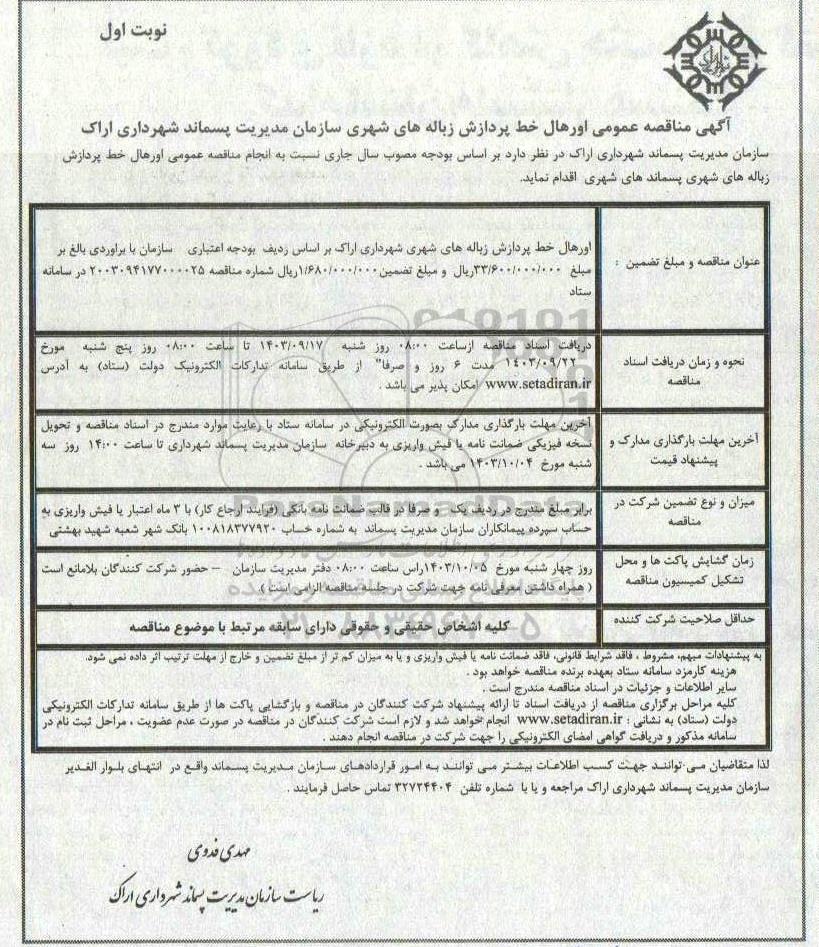 نوبت اول
آگهی مناقصه عمومی اورهال خط پردازش زباله های شهری سازمان مدیریت پسماند شهرداری اراک
سازمان مدیریت پسماند شهرداری اراک در نظر دارد بر اساس بودجه مصوب سال جاری نسبت به انجام مناقصه عمومی اورهال خط پردازش
زباله های شهری پسماند های شهری اقدام نماید.
عنوان مناقصه و مبلغ تضمین :
اورهال خط پردازش زباله های شهری شهرداری اراک بر اساس ردیف بودجه اعتباری سازمان با براوردی بالغ بر
مبلغ ۳۳/۶۰۰/۰۰۰/۰۰۰ریال و مبلغ تضمین۱/۶۸۰/۰۰۰/۰۰۰ریال شماره مناقصه ۲۰۰۳۰۹۴۱۷۷۰۰۰۰۲۵ در سامانه
ستاد
نحوه و زمان دریافت اسناد
مناقصه
دریافت اسناد مناقصه ازساعت ۰۸:۰۰ روز شنبه ۱۴۰۳/۰۹/۱۷ تا ساعت ۰۸:۰۰ روز پنج شنبه مورخ
۱۴۰۳/۰۹/۲۲ مدت ۶ روز و صرفا" از طریق سامانه تدارکات الکترونیک دولت (ستاد) به آدرس
www.setadiran.ir امکان پذیر می باشد .
آخرین مهلت بارگذاری مدارک و
پیشنهاد قیمت
آخرین مهلت بارگذاری مدارک بصورت الکترونیکی در سامانه ستاد با رعایت موارد مندرج در اسناد مناقصه و تحویل
نسخه فیزیکی ضمانت نامه یا فیش واریزی به دبیرخانه سازمان مدیریت پسماند شهرداری تا ساعت ۱۴:۰۰ روز سه
شنبه مورخ ۱۴۰۳/۱۰/۰۴ می باشد .
میزان و نوع تضمین شرکت در
مناقصه
برابر مبلغ مندرج در ردیف یک و صرفا در قالب ضمانت نامه بانکی (فرایند ارجاع کار) با ۳ ماه اعتبار یا فیش واریزی به
حساب سپرده پیمانکاران سازمان مدیریت پسماند به شماره حساب ۱۰۰۸۱۸۳۷۷۹۲۰ بانک شهر شعبه شهید بهشتی
زمان گشایش پاکت ها و محل
تشکیل کمیسیون مناقصه
روز چهار شنبه مورخ ۱۴۰۳/۱۰/۰۵راس ساعت ۰۸:۰۰ دفتر مدیریت سازمان – حضور شرکت کنندگان بلامانع است
( همراه داشتن معرفی نامه جهت شرکت در جلسه مناقصه الزامی است )
حداقل صلاحیت شرکت کننده
کلیه اشخاص حقیقی و حقوقی دارای سابقه مرتبط با موضوع مناقصه
به پیشنهادات مبهم، مشروط ، فاقد شرایط قانونی، فاقد ضمانت نامه یا فیش واریزی و یا به میزان کم تر از مبلغ تضمین و خارج از مهلت ترتیب اثر داده نمی شود.
هزینه کارمزد سامانه ستاد بعهده برنده مناقصه خواهد بود .
سایر اطلاعات و جزئیات در اسناد مناقصه مندرج است .
کلیه مراحل برگزاری مناقصه از دریافت اسناد تا ارائه پیشنهاد شرکت کنندگان در مناقصه و بازگشایی پاکت ها از طریق سامانه تدارکات الکترونیکی
دولت (ستاد) به نشانی : www.setadiran.ir انجام خواهد شد و لازم است شرکت کنندگان در مناقصه در صورت عدم عضویت ، مراحل ثبت نام در
سامانه مذکور و دریافت گواهی امضای الکترونیکی را جهت شرکت در مناقصه انجام دهند .
لذا متقاضیان می توانند جهت کسب اطلاعات بیشتر می توانند به امور قراردادهای سازمان مدیریت پسماند واقع در انتهای بلوار الغدیر
سازمان مدیریت پسماند شهرداری اراک مراجعه و یا با شماره تلفن ۳۲۷۲۴۴۰۴ تماس حاصل فرمایند .
مهدی فدوی
ریاست سازمان مدیریت پسماند شهرداری اراک